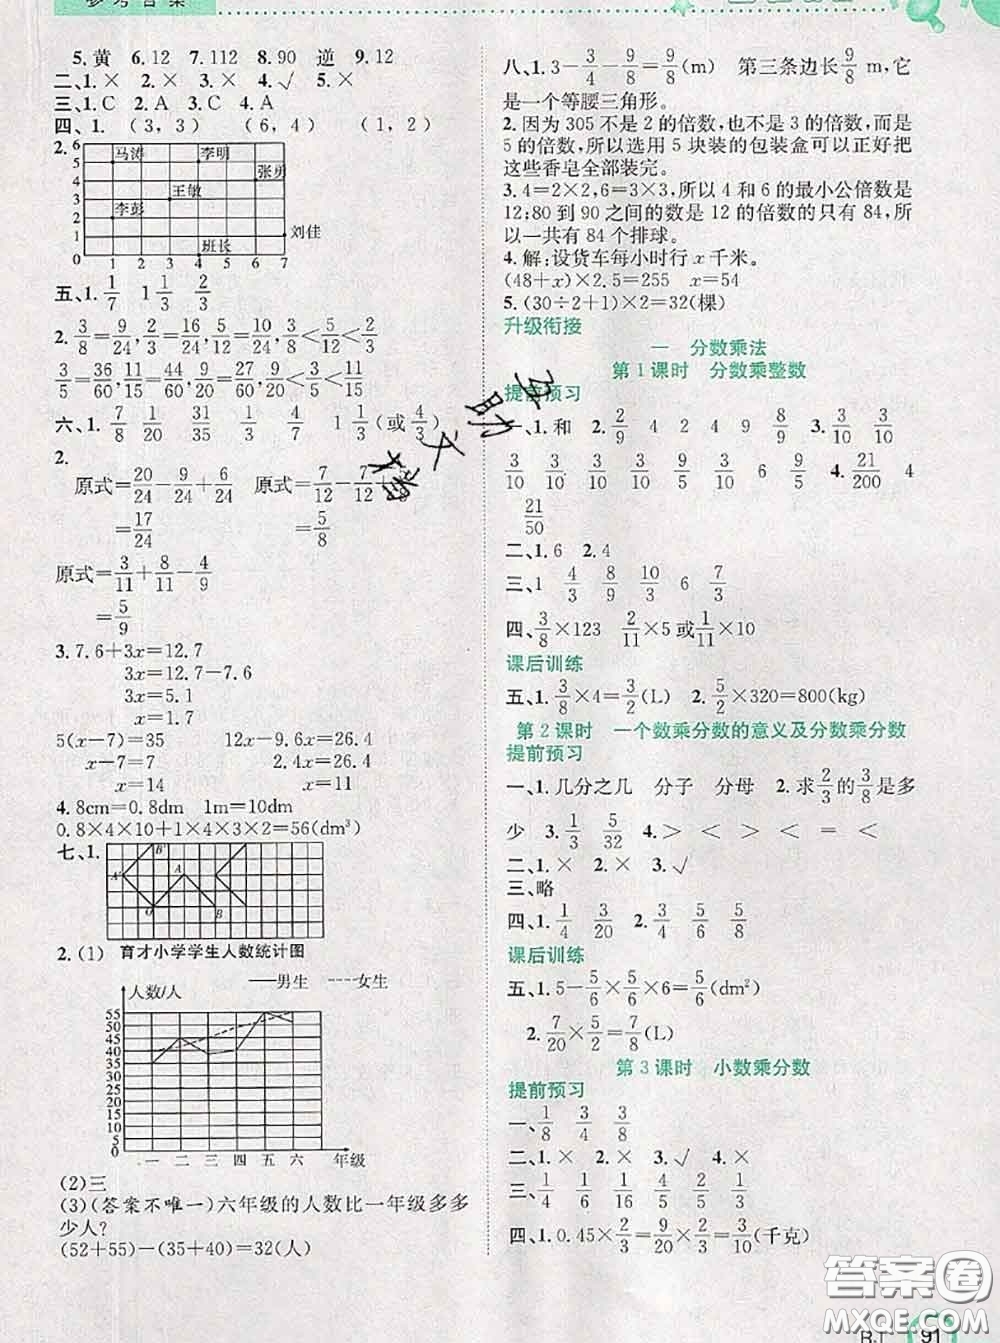 参考答案
5.黄 6.12 7.12 8.90 逆 9.12
二、1.× 2.× 3.× 4.√ 5.×
三、1.C 2.A 3.C 4.A
四、1. (3,3) (6,4) (1,2)
2. 马涛 李明 张勇 王敏 李彭 刘佳 班长
6 5 4 3 2 1 0 1 2 3 4 5 6 7
五、1. 1/7 1 1/3 2/3
2. 3/8=9/24, 5/12=10/24, 2/3=16/24 3/8<5/12<2/3
3/5=36/60, 11/15=44/60, 5/12=25/60 5/12<3/5<11/15
六、1. 7/8 1/20 9/35 3/4 5/7 1 1/3(或4/3)
2.
原式=20/24-9/24+6/24 原式=7/12-7/12
=17/24 =5/8
原式=3/11+8/11-4/9
=5/9
3.7.6+3x=12.7
3x=12.7-7.6
3x=5.1
x=1.7
5(x-7)=35 12x-9.6x=26.4
x-7=7 2.4x=26.4
x=14 x=11
4.8cm=0.8dm 1m=10dm
0.8×4×10+1×4×3×2=56(dm³)
七、1. B' A' A O B
2.(1) 育才小学学生人数统计图
——男生 ----女生
人数/人
55 50 45 40 35 30 25 20 15 10 5 0
一 二 三 四 五 六 年级
(2)三
(3)(答案不唯一)六年级的人数比一年级多多
少人?
(52+55)-(35+40)=32(人)
八、1.3-3/4-9/8=9/8(m) 第三条边长9/8 m,它
是一个等腰三角形。
2.因为 305 不是 2 的倍数,也不是 3 的倍数,而是
5 的倍数,所以选用 5 块装的包装盒可以正好把
这些香皂全部装完。
3.4=2×2,6=3×3,所以 4 和 6 的最小公倍数是
12;80 到 90 之间的数是 12 的倍数的只有 84,所
以一共有 84 个排球。
4.解:设货车每小时行 x 千米。
(48+x)×2.5=255 x=54
5.(30÷2+1)×2=32(棵)
升级衔接
一 分数乘法
第 1 课时 分数乘整数
提前预习
一、1.和 2. 2/9 4 2 4 9 8/9 3. 3/10 3/10
3/10 3/10 3 3 9/10 5 6 9/5 4. 21/200 4
21/50
二、1.6 2.4
三、1 4/3 8/9 10/3 6 7/3
四、3/8×123 2/11×5或1/11×10
课后训练
五、1. 3/8×4=3/2(L) 2. 5/2×320=800(kg)
第 2 课时 一个数乘分数的意义及分数乘分数
提前预习
一、1.几分之几 分子 分母 2.求2/3的3/8是多
少 3. 1/3 5/32 4.> < > < = <
二、1.× 2.× 3.√
三、略
四、1. 1/4 3/20 4/9 1/4 2/7 1/6
课后训练
五、1.5-5/6×5/6×6=5/6(dm²)
2. 7/20×5/2=7/8(L)
第 3 课时 小数乘分数
提前预习
一、1/8 3/4 3/8
二、1.× 2.× 3.√ 4.×
三、1/4 1/6 1/16 5/4 4/5 9/4
四、1.0.45×2/3=9/20×2/3=3/10(千克)
RJ 91
答案圈
MXQE.COM